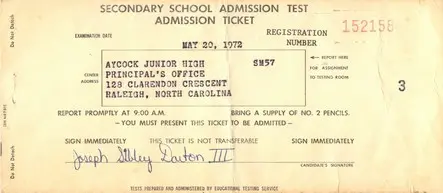 SECONDARY SCHOOL ADMISSION TEST
ADMISSION TICKET
EXAMINATION DATE
MAY 20, 1972
REGISTRATION NUMBER
152158
CENTER ADDRESS
AYCOCK JUNIOR HIGH SM57
PRINCIPAL'S OFFICE
128 CLARENDON CRESCENT
RALEIGH, NORTH CAROLINA
← REPORT HERE
FOR ASSIGNMENT
TO TESTING ROOM
3
REPORT PROMPTLY AT 9:00 A.M. BRING A SUPPLY OF NO. 2 PENCILS.
—YOU MUST PRESENT THIS TICKET TO BE ADMITTED—
SIGN IMMEDIATELY THIS TICKET IS NOT TRANSFERABLE SIGN IMMEDIATELY
Joseph Sibley Dorton III
CANDIDATE'S SIGNATURE
TESTS PREPARED AND ADMINISTERED BY EDUCATIONAL TESTING SERVICE
Do Not Detach
Do Not Detach